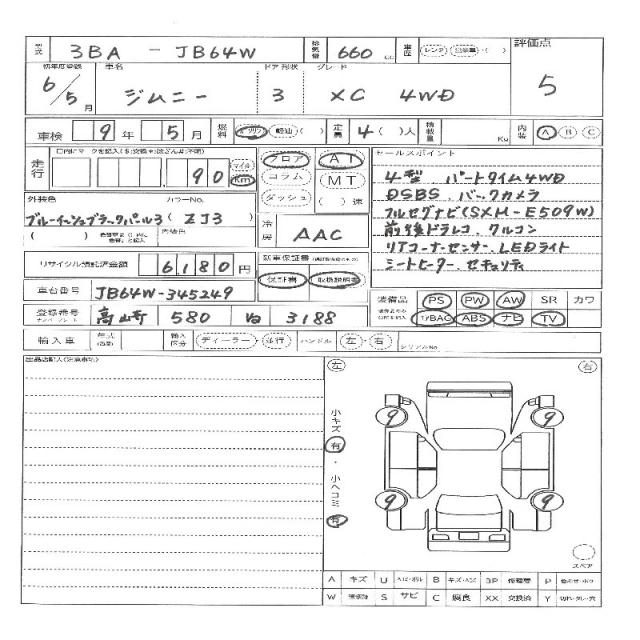 型式 3BA - JB64W 排気量 660 cc 車歴 レンタ ・ 自家用 ・( ) 評価点
初年度登録 車名 ドア形状 グレード
6/5月 ジムニー 3 XC 4WD 5
車検 9 年 5 月 燃料 ガソリン 軽油 ( ) 定員 4 ( )人 積載量 Kg 内装 A B C
走行 9 0 マイル Km
フロア コラム ダッシュ
AT MT ( )速
セールスポイント
4型 パートタイム4WD
DSBS. バックカメラ
フルセグナビ(SXM-E509W)
前後ドラレコ. クルコン
リアコーナーセンサー. LEDライト
シートヒーター. セキュリティ
外装色 カラーNo.
ブルーイッシュブラックパール3 ( ZJ3 )
( ) 内装色
冷房 AAC
リサイクル預託済金額 6,180 円
新車保証書
保証書 取扱説明書
車台番号 JB64W-345249
装備品 PS PW AW SR カワ
エアBAG ABS ナビ TV
登録番号 高崎 580 3188
輸入車 年式 輸入区分 ディーラー ・ 並行 ハンドル 左 ・ 右 シリアルNo
出品店記入(注意事項)
左 右
小キズ 有 ・ 小ヘコミ 有
9 9
9 9
スペア
A キズ U B P
W S サビ C 腐食 XX 交換済 Y